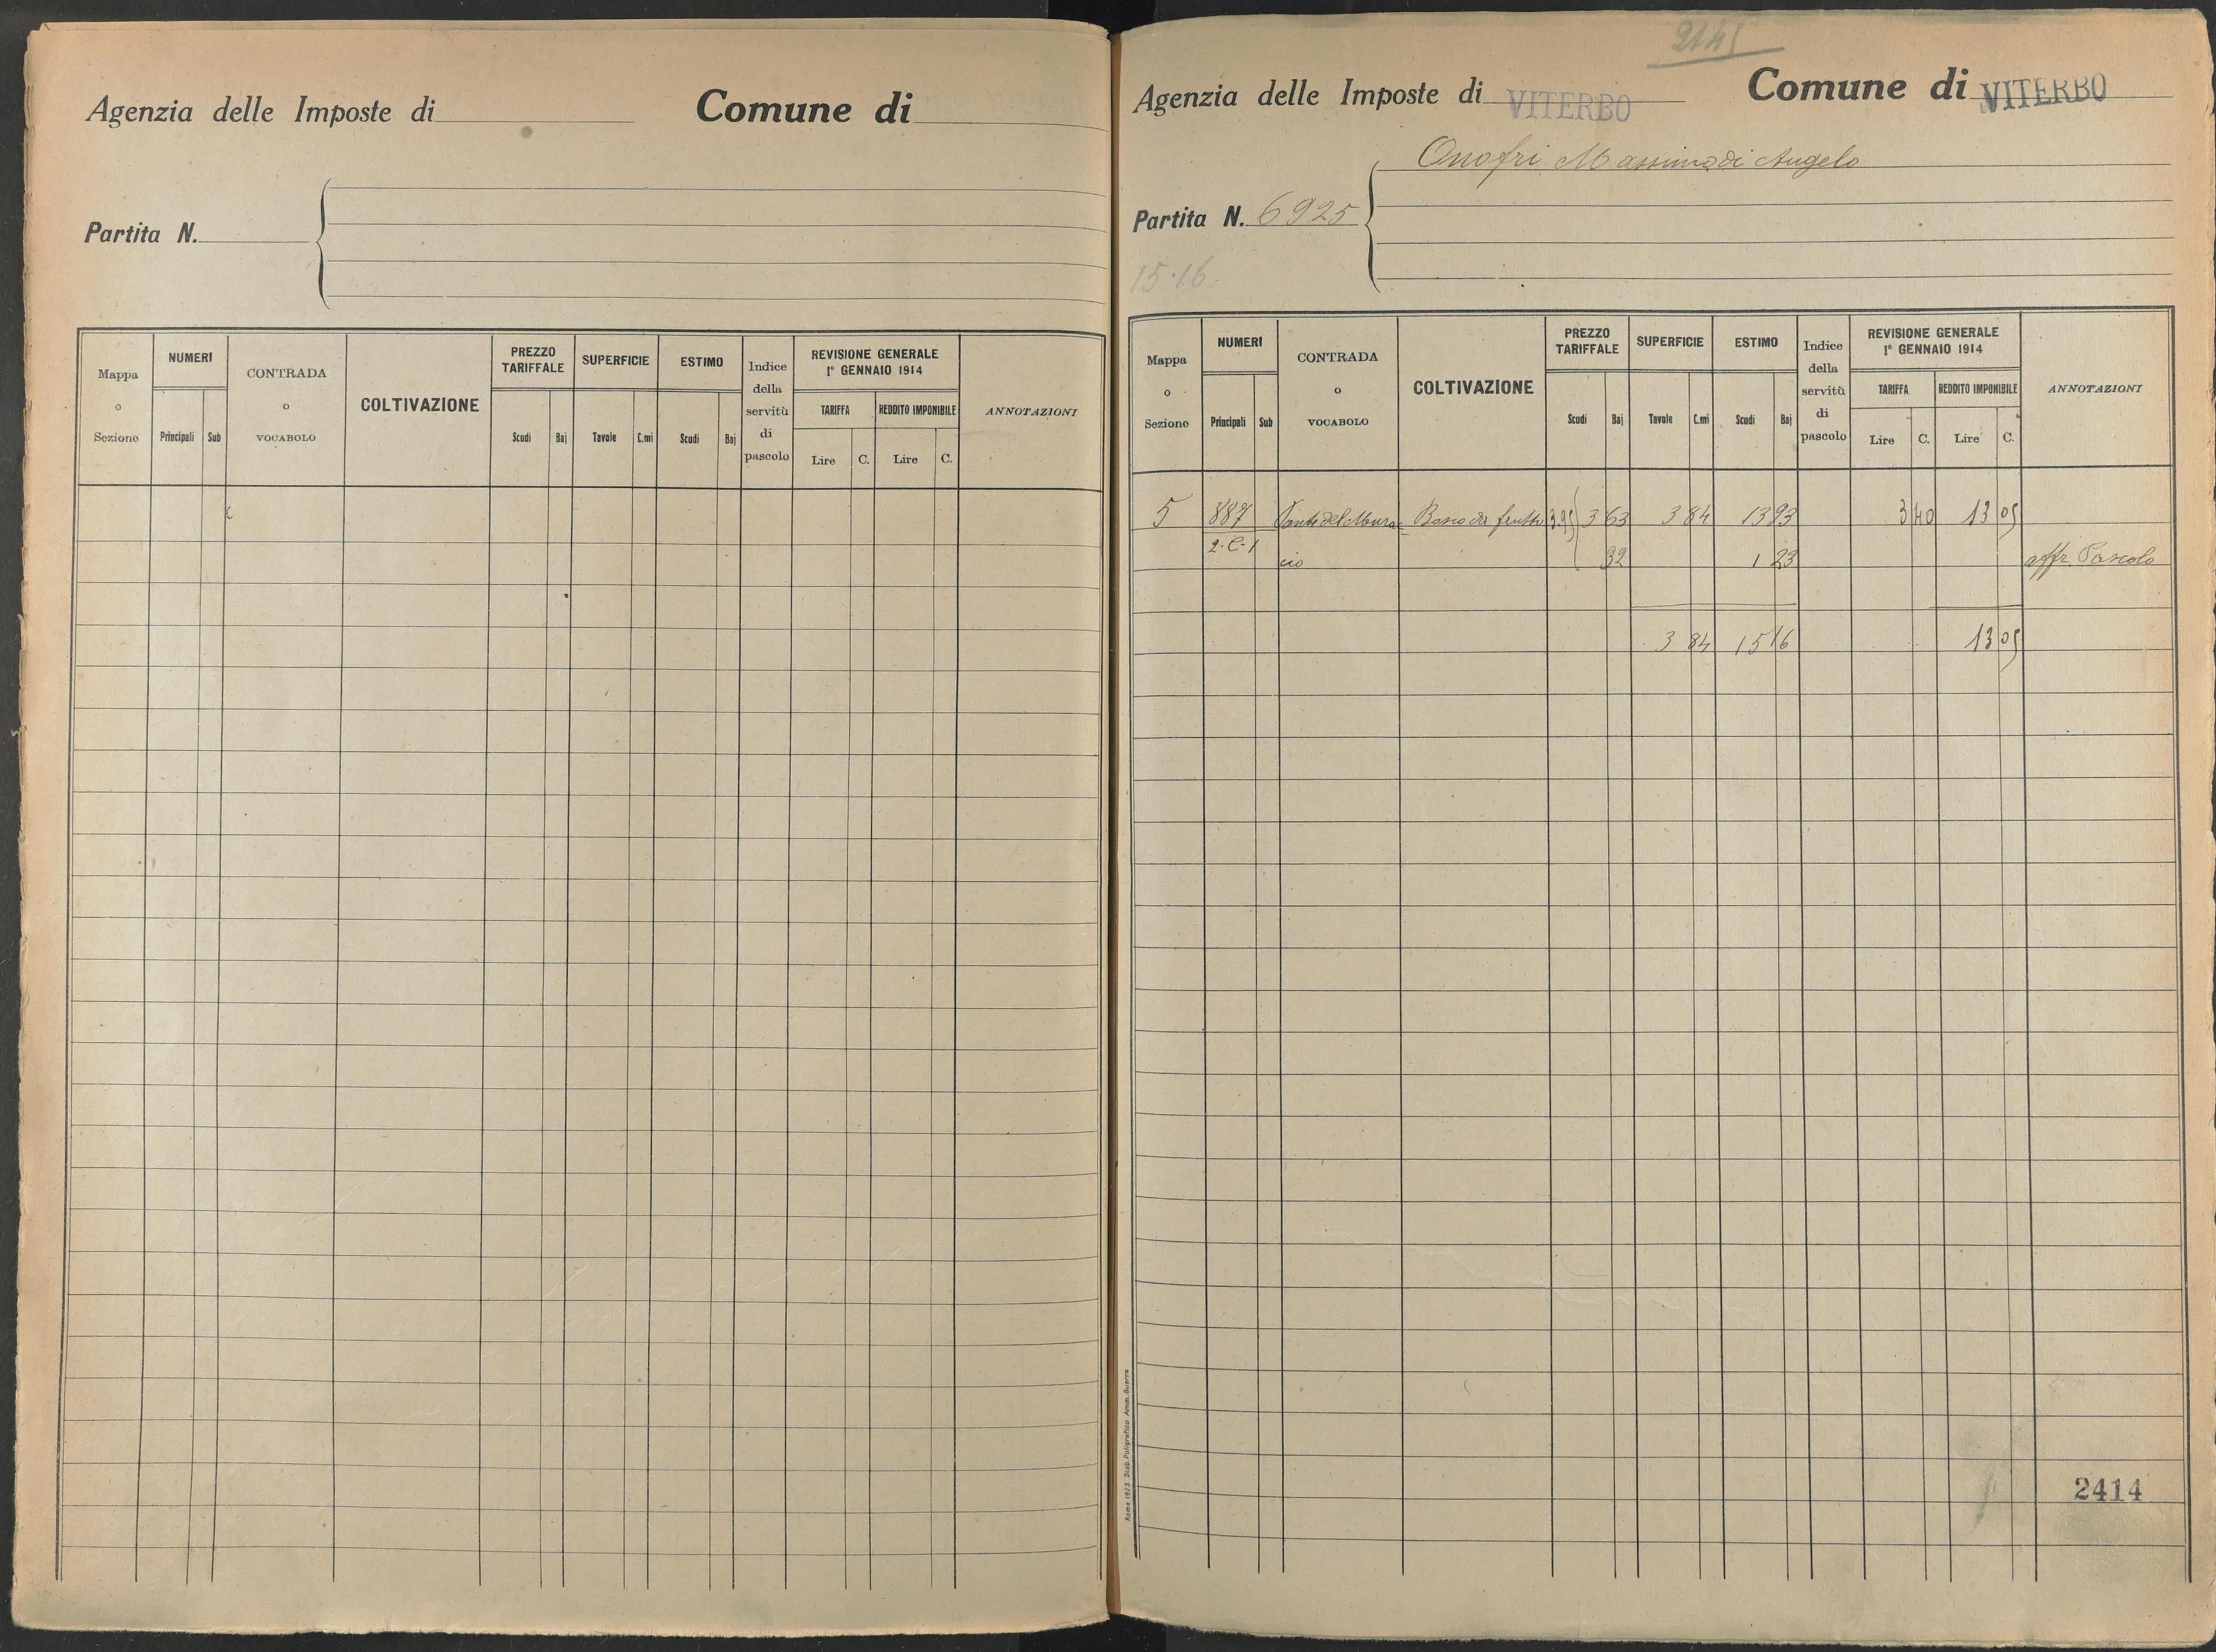 Agenzia delle Imposte di
Comune di
Partita N.
Mappa o Sezione
NUMERI
Principali
Sub
CONTRADA o VOCABOLO
COLTIVAZIONE
PREZZO TARIFFALE
Scudi
Baj
SUPERFICIE
Tavole
C.mi
ESTIMO
Scudi
Baj
Indice della servitù di pascolo
REVISIONE GENERALE
1° GENNAIO 1914
TARIFFA
REDDITO IMPONIBILE
Lire
C.
Lire
C.
ANNOTAZIONI
2145
Agenzia delle Imposte di VITERBO
Comune di VITERBO
Onofri Massimo di Angelo
Partita N. 6925
15.16
Mappa o Sezione
NUMERI
Principali
Sub
CONTRADA o VOCABOLO
COLTIVAZIONE
PREZZO TARIFFALE
Scudi
Baj
SUPERFICIE
Tavole
C.mi
ESTIMO
Scudi
Baj
Indice della servitù di pascolo
REVISIONE GENERALE
1° GENNAIO 1914
TARIFFA
REDDITO IMPONIBILE
Lire
C.
Lire
C.
ANNOTAZIONI
5 887 del Mura= da frutto 3.95 3 63 3 84 13 93 3 40 13 05
2.C.1 cio 32 1 23 affr. Pascolo
3 84 15 16 13 05
2414
Roma 1923 Stab. Poligrafico Amm. Guerra